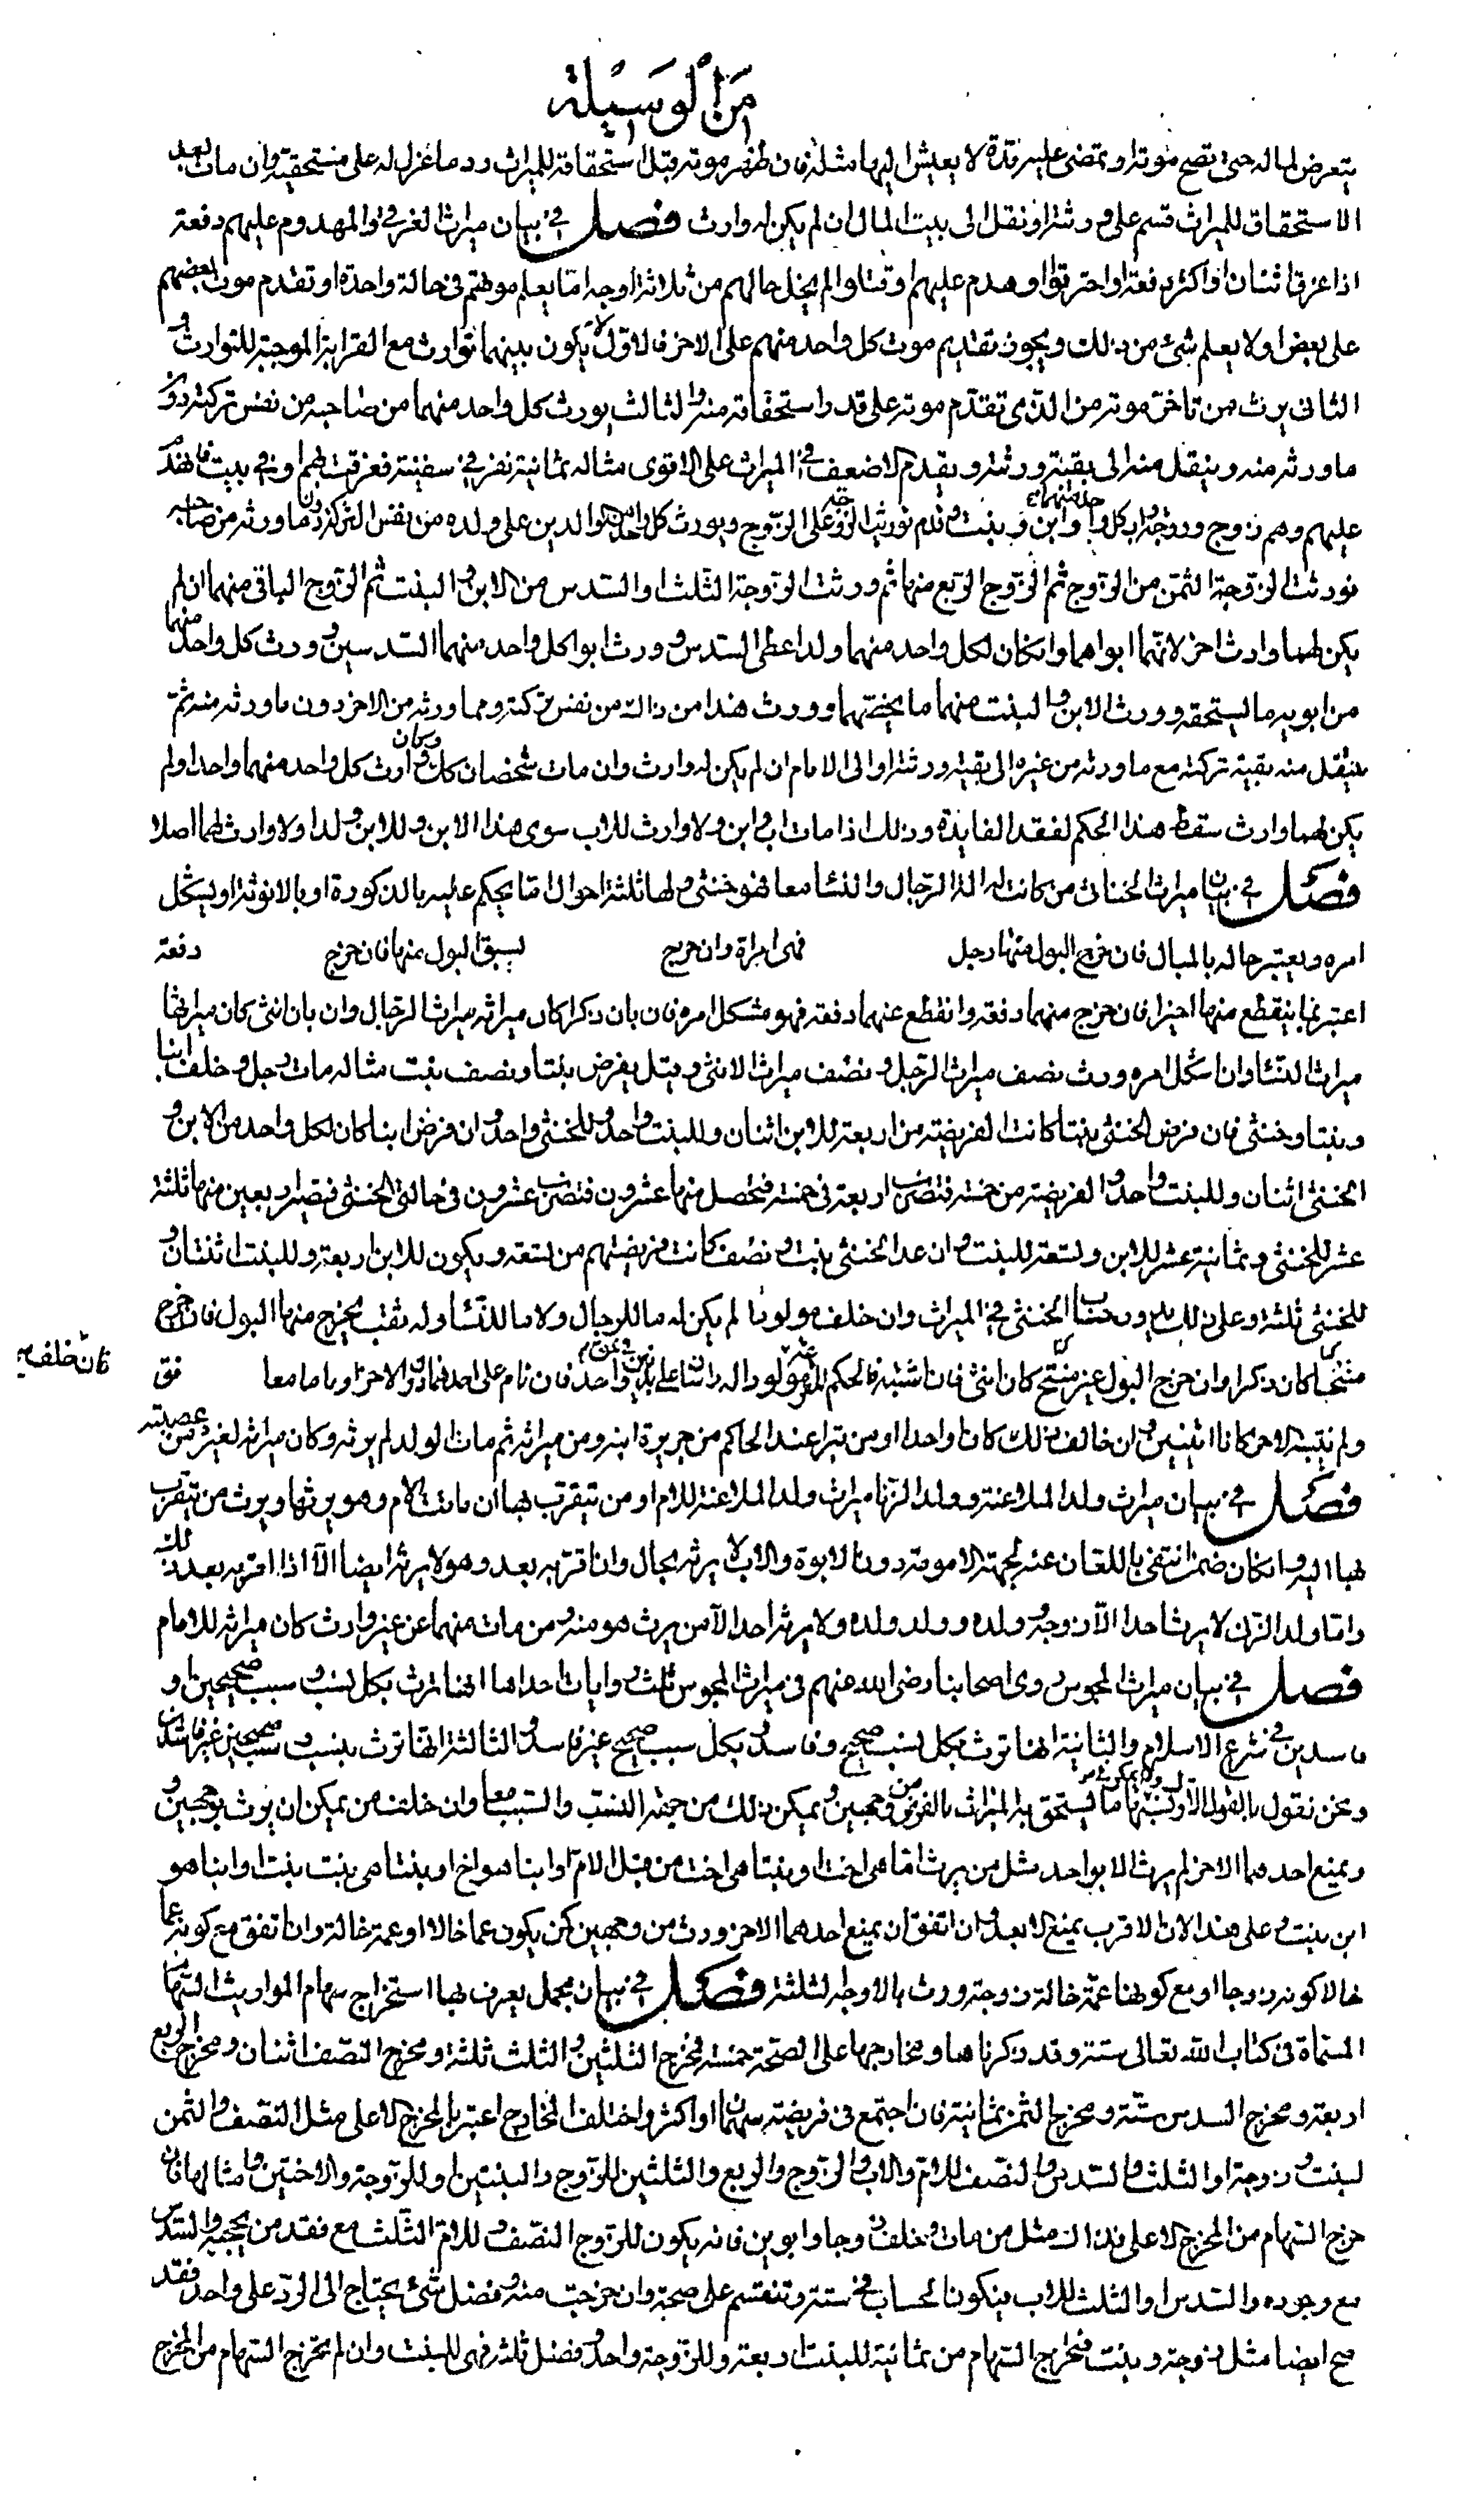 من الوسيلة
يتعرض لماله حتى تصح موته او تمضى عليه مدة لا يعيش اليها مثله فان ظهر موته قبل استحقاقه للميراث رد ما عزل له على مستحقيه وان مات بعد
الاستحقاق للميراث قسم على ورثته او نقل الى بيت المال ان لم يكن له وارث فصل في بيان ميراث الغرقى والمهدوم عليهم دفعة
اذا غرق اثنان او اكثر دفعة او احترقوا او هدم عليهم او قتلوا لم يخل حالهم من ثلاثة اوجه اما يعلم موتهم في حالة واحدة او تقدم موت بعضهم
على بعض او لا يعلم شئ من ذلك ويجوز تقديم موت كل واحد منهم على الاخر فالاول لا يكون بينهما توارث مع القرابة الموجبة للتوارث و
الثانى يرث من تاخر موته من الذى تقدم موته على قدر استحقاقه منه والثالث يورث كل واحد منهما من صاحبه من نفس تركته دون
ما ورثه منه وينقل منه الى بقية ورثته ويقدم الاضعف في الميراث على الاقوى مثاله ثمانية نفر في سفينة فغرقت بهم او في بيت فانهدم
عليهم وهم زوج وزوجة ولكل واحد منهما ابن وبنت قدم توريث الزوجة على الزوج ويورث كل واحد من الوالدين على ولده من نفس التركة دون ما ورثه من صاحبه
فورثت الزوجة الثمن من الزوج ثم الزوج الربع منها ثم ورثت الزوجة الثلث او السدس من الابن والبنت ثم الزوج الباقى منهما ان لم
يكن لهما وارث اخر لانهما ابواهما وان كان لكل واحد منهما ولد اعطى السدس وورث ابوا كل واحد منهما السدسين وورث كل واحد منهما
من ابويه ما يستحقه وورث الابن والبنت منهما ما يخصهما وورث هذا من ذاك من نفس تركته ومما ورثه من الاخر دون ما ورثه منه ثم
ينقل منه بقية تركته مع ما ورثه من غيره الى بقية ورثته او الى الامام ان لم يكن له وارث وان مات شخصان كل وارث كل واحد منهما واحد ولم
يكن لهما وارث سقط هذا الحكم لفقد الفايدة وذلك اذا مات اب وابن ولا وارث للاب سوى هذا الابن وللابن ولد اولا وارث لهما اصلا
فصل في بيان ميراث الخناثى من كانت له الة الرجال والنساء معا فهو خنثى ولها ثلثة احوال اما يحكم عليه بالذكورة او بالانوثة او يشكل
امره ويعتبر حاله بالمبال فان خرج البول منها رجل فهى امراة وان خرج يسبق البول منها فان خرج دفعة
اعتبر بما ينقطع منها اخيرا فان خرج منهما دفعة وانقطع عنهما دفعة فهو مشكل امره فان بان ذكرا كان ميراثه ميراث الرجال وان بان انثى كان ميراثها
ميراث النساء وان اشكل امره ورث نصف ميراث الرجل ونصف ميراث الانثى وقيل يفرض بنتا ونصف بنت مثاله مات رجل وخلف ابنا
وبنتا وخنثى فان فرض الخنثى بنتا كانت الفريضة من اربعة للابن اثنان وللبنت واحد وللخنثى واحد وان فرض ابنا كان لكل واحد من الابن و
الخنثى اثنان وللبنت واحد والفريضة من خمسة فتضرب اربعة في خمسة فتحصل منها عشرون فتضرب عشرون في حالتى الخنثى فتصير اربعين منها ثلثة
عشر للخنثى وثمانية عشر للابن وتسعة للبنت وان عد الخنثى بنت ونصف كانت فريضتهم من تسعة ويكون للابن اربعة وللبنت اثنتان و
للخنثى ثلثة وعلى ذلك يدور حساب الخنثى في الميراث وان خلف مولودا لم يكن له ما للرجال ولا ما للنساء وله ثقب يخرج منها البول فان خرج
متنحيا كان ذكرا وان خرج البول غير متنح كان انثى فان اشتبه فالحكم القرعة مولود له راسان على بدن واحد فان نام على احدهما دون الاخر او ناما معا فق
فان خلف
ولم ينتبه الاخر كانا اثنين وان خالف ذلك كانا واحدا ومن تبرا عند الحاكم من جريرة ابنه ومن ميراثه ثم مات الولد لم يرثه وكان ميراثه لغيره من عصبته
فصل في بيان ميراث ولد الملاعنة وولد الزنا ميراث ولد الملاعنة للام او من تيقرب بها ان ماتت الام وهو يرثها ويرث من تيقرب
بها اليه وان كان ممن انتفى باللعان عنه لجهة الامومة دون الابوة والاب لا يرثه بحال وان اقر به بعد وهو لا يرثه ايضا الا اذا اقر به بعد ذلك
واما ولد الزنا لا يرث احدا الا زوجه وولده وولد ولده ولا يرثه احد الا من يرث هو منه ومن مات منهما عن غير وارث كان ميراثه للامام
فصل في بيان ميراث المجوس روى اصحابنا رضى الله عنهم في ميراث المجوس ثلث روايات احداها انها ترث بكل نسب وسبب صحيحين او
فاسدين في شرع الاسلام والثانية انها تورث بكل نسب صحيح وفاسد وبكل سبب صحيح غير فاسد والثالثة انها تورث بنسب وسبب صحيحين غير فاسدين
ونحن نقول بالقول الاول ما يستحق به الميراث بالفرض من وجهين ويمكن ذلك من جهة النسب والسبب معا وان خلف من يمكن ان يرث بوجهين و
ويمنع احدهما الاخر لم يرث الا بواحد مثل من يرث اما هى اخت او بنتا هى اخت من قبل الام او ابنا هو اخ او بنتا هى بنت بنت او ابنا هو
ابن بنت وعلى هذا لان الاقرب يمنع الابعد وان اتفق ان يمنع احدهما الاخر ورث من وجهين كمن يكون عما خالا او عمة خالة وان اتفق مع كونه عما
خالا كونه زوجا او مع كونها عمة خالة زوجة ورث بالاوجه الثلثة فصل في بيان مجمل يعرف بها استخراج سهام المواريث السهام
المسماة في كتاب الله تعالى ستة وقد ذكرناها ومخارجها على الصحة خمسة مخرج الثلثين والثلث ثلثة ومخرج النصف اثنان ومخرج الربع
اربعة ومخرج السدس ستة ومخرج الثمن ثمانية فان اجتمع في فريضة سهمان او اكثر واختلف المخارج اعتبر بالمخرج الاعلى مثل النصف والثمن
لبنت وزوجة او الثلث والسدس والنصف للام والاب والزوج والربع والثلثين للزوج والبنتين او للزوجة والاختين وامثالها فان
خرج السهام من المخرج الاعلى فذاك مثل من مات وخلف زوجا وابوين فانه يكون للزوج النصف وللام الثلث مع فقد من يحجبها والسدس
مع وجوده والسدس او الثلث للاب فيكون الحساب في ستة وتنقسم على صحة وان خرجت منه وفضل شئ يحتاج الى الرد على واحد فقد
صح ايضا مثل زوجة وبنت فخرج السهام من ثمانية للبنت اربعة وللزوجة واحد وفضل ثلثة فهى للبنت وان لم يخرج السهام من المخرج